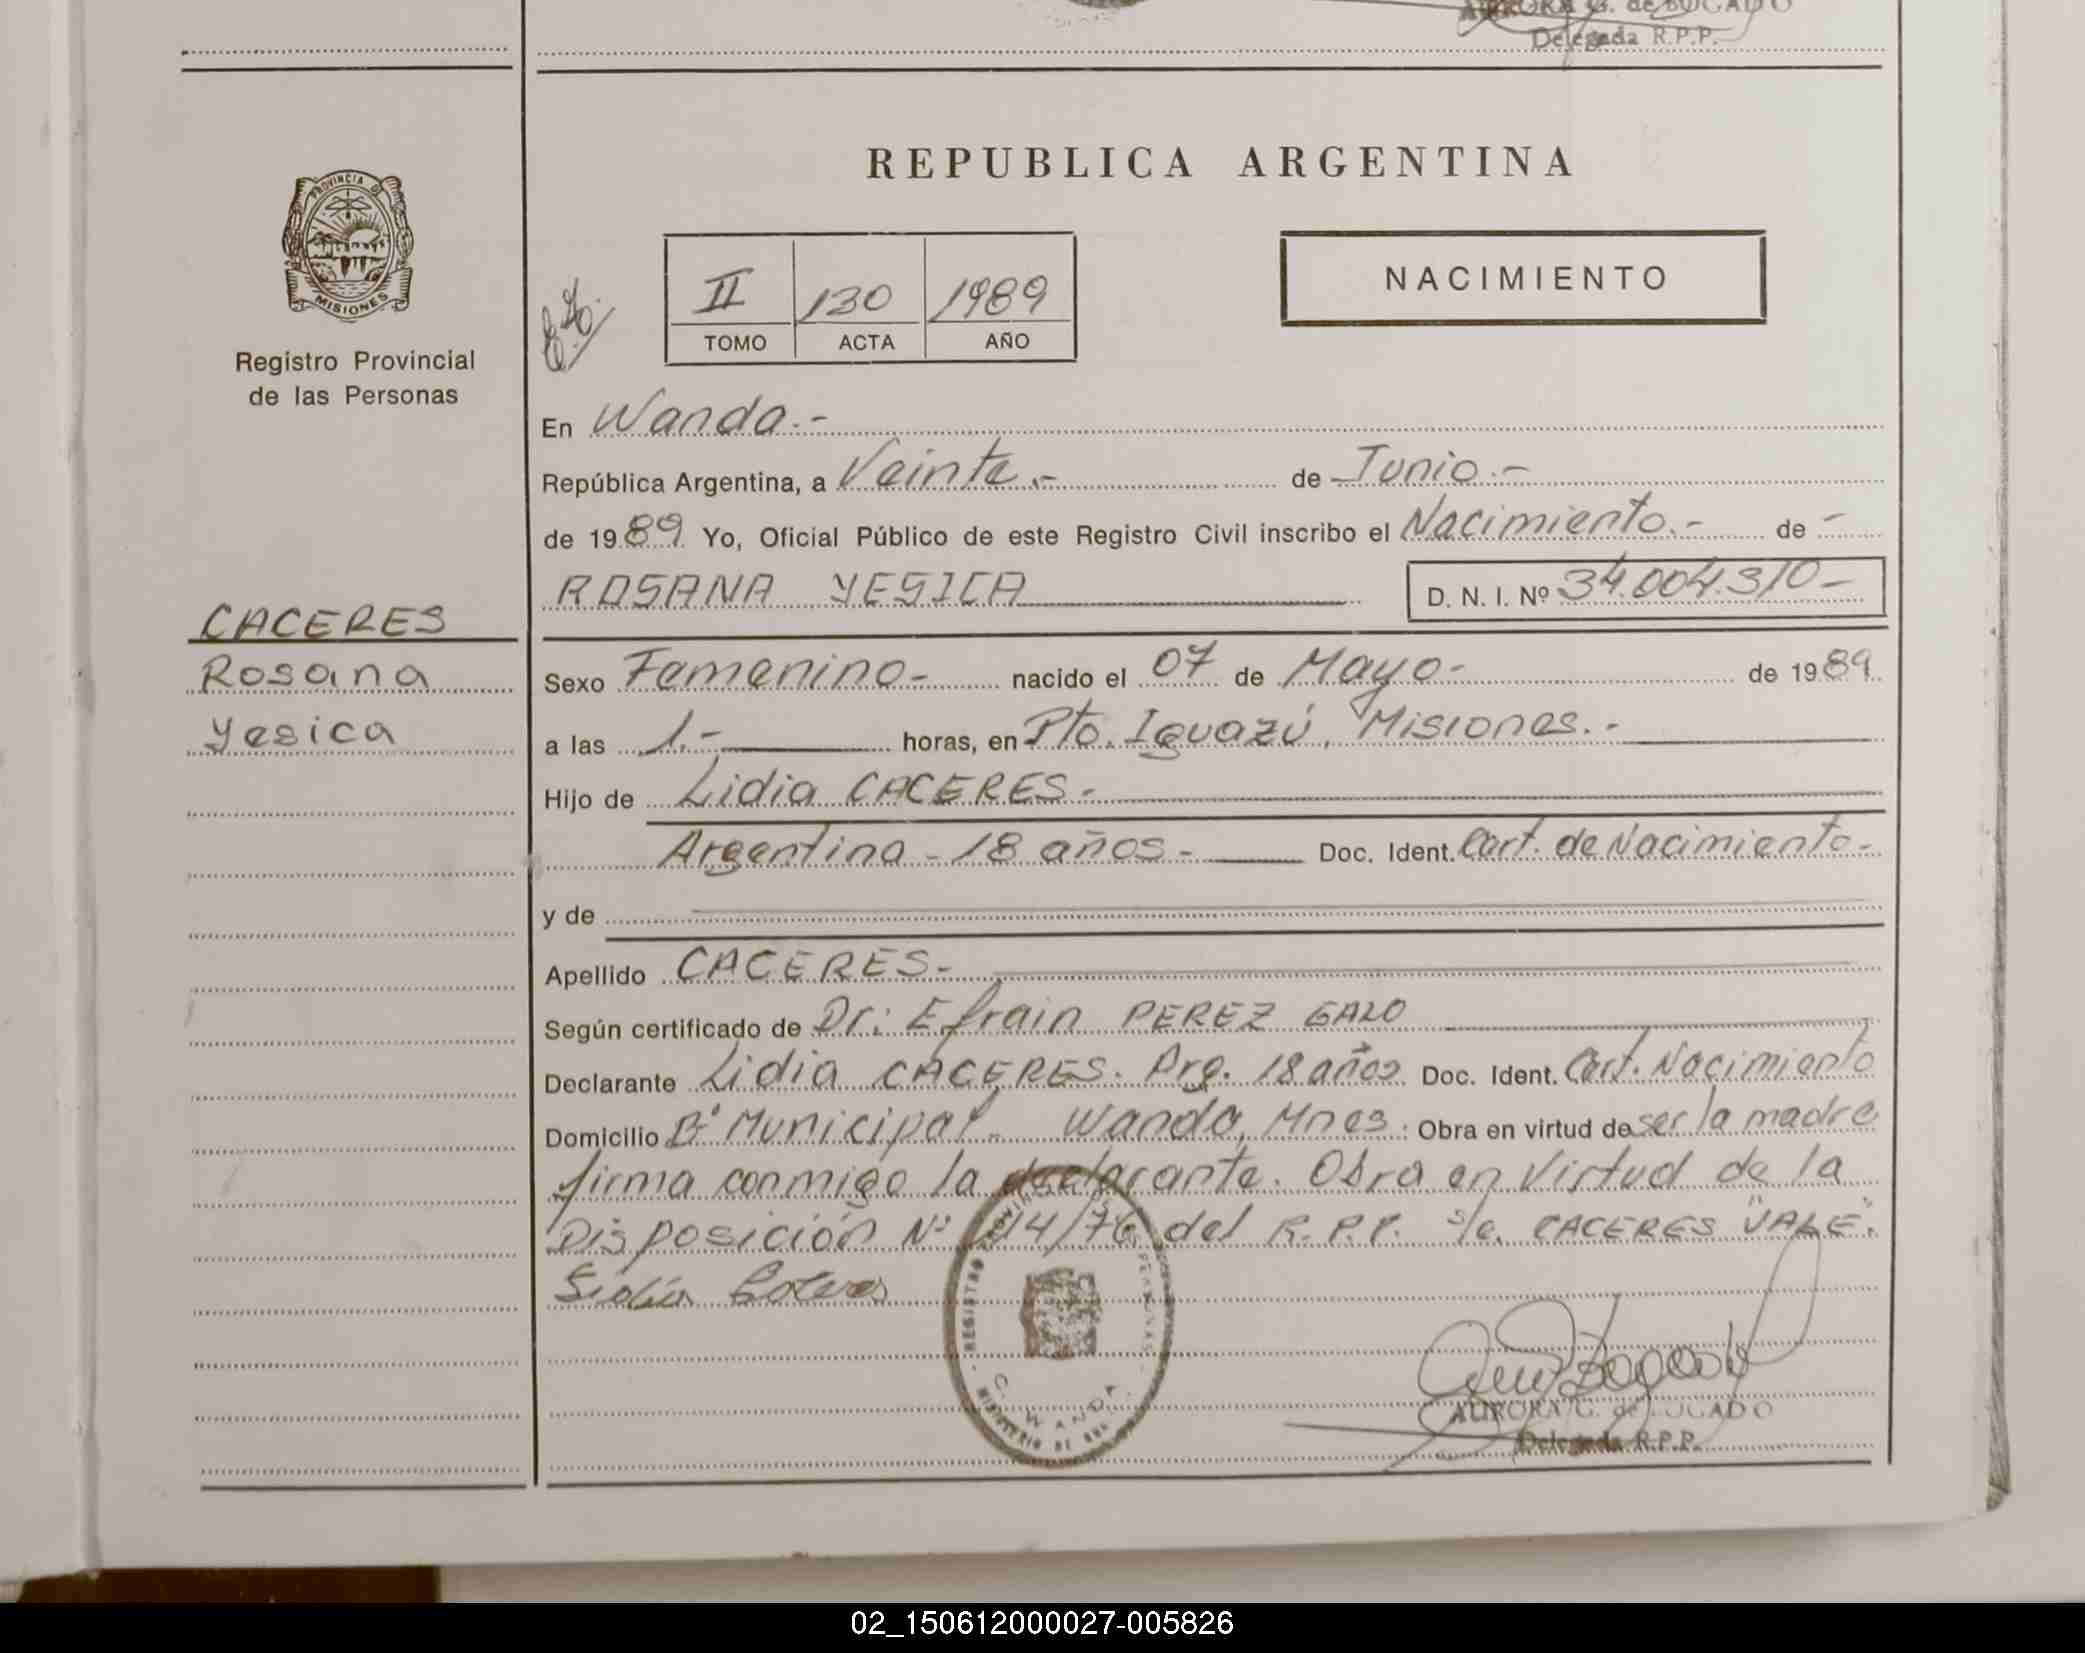 AURORA G. de BOGADO
Delegada R.P.P.
REPUBLICA ARGENTINA
PROVINCIA DE
MISIONES
Registro Provincial
de las Personas
II 130 1989
TOMO ACTA AÑO
NACIMIENTO
En Wanda.-
República Argentina, a Veinte.- de Junio.-
de 1989 Yo, Oficial Público de este Registro Civil inscribo el Nacimiento.- de -
ROSANA YESICA D. N. I. Nº 34.004.310-
CACERES
Rosana
Yesica
Sexo Femenino- nacido el 07 de Mayo- de 1989
a las 1.- horas, en Pto. Iguazú, Misiones.-
Hijo de Lidia CACERES.-
Argentina - 18 años.- Doc. Ident. Cert. de Nacimiento-
y de
Apellido CACERES-
Según certificado de Dr: Efrain PEREZ GALO
Declarante Lidia CACERES. Arg. 18 años Doc. Ident. Cert. Nacimiento
Domicilio Bº Municipal - Wanda, Mnes. Obra en virtud de ser la madre
firma conmigo la declarante. Obra en Virtud de la
Disposición Nº 14/76 del R.P.P. s/c. CACERES "VALE".
Lidia
REGISTRO PROVINCIAL DE LAS PERSONAS
WANDA
MINISTERIO DE
AURORA G. de BOGADO
Delegada R.P.P.
02_150612000027-005826